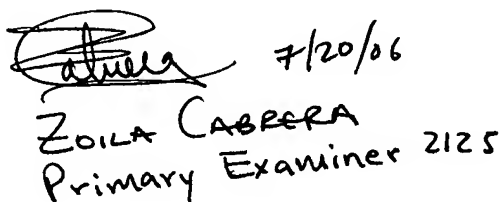 Cabrera 7/20/06
ZOILA CABRERA
Primary Examiner 2125